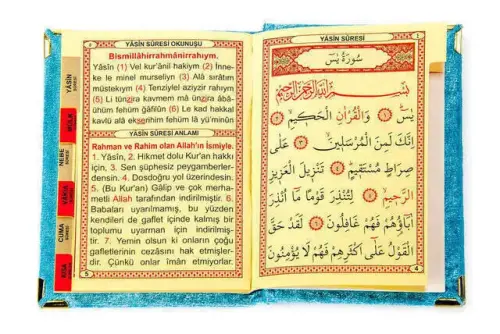 YÂSÎN SÛRESİ OKUNUŞU
Bismillâhirrahmânirrahıym.
Yâsîn (1) Vel kur'ânil hakiym (2) İnne-
ke le minel murseliyn (3) Alâ sırâtım
müstekıym (4) Tenziylel aziyzir rahıym
(5) Li tünzira kavmem mâ ünzira âbâ-
ühüm fehüm ğâfilûn (6) Le kad hakkal
kavlü alâ ekserihim fehüm lâ yü'minûn
YÂSÎN SÛRESİ ANLAMI
Rahman ve Rahim olan Allah'ın İsmiyle.
1. Yâsîn, 2. Hikmet dolu Kur'an hakkı
için, 3. Sen şüphesiz peygamberler-
densin. 4. Dosdoğru yol üzerindesin.
5. (Bu Kur'an) Gâlip ve çok merha-
metli Allah tarafından indirilmiştir. 6.
Babaları uyarılmamış, bu yüzden
kendileri de gaflet içinde kalmış bir
toplumu uyarman için indirilmiş-
tir. 7. Yemin olsun ki onların çoğu
gafletlerinin cezasını hak etmişler-
dir. Çünkü onlar îman etmiyorlar.
5
YÂSİN
MÜLK
NEBE
VAKIA
CUMA
KISA
YÂSÎN SÛRESİ
سُورَةُ يٰسٓ
بِسْمِ اللّٰهِ الرَّحْمٰنِ الرَّحِيمِ
يٰسٓ ﴿١﴾ وَالْقُرْاٰنِ الْحَكِيمِ ﴿٢﴾
اِنَّكَ لَمِنَ الْمُرْسَلِينَ ﴿٣﴾ عَلٰى
صِرَاطٍ مُسْتَقِيمٍ ﴿٤﴾ تَنْزِيلَ الْعَزِيزِ
الرَّحِيمِ ﴿٥﴾ لِتُنْذِرَ قَوْمًا مَٓا اُنْذِرَ
اٰبَٓاؤُ۬هُمْ فَهُمْ غَافِلُونَ ﴿٦﴾ لَقَدْ حَقَّ
الْقَوْلُ عَلٰٓى اَكْثَرِهِمْ فَهُمْ لَا يُؤْمِنُونَ
4